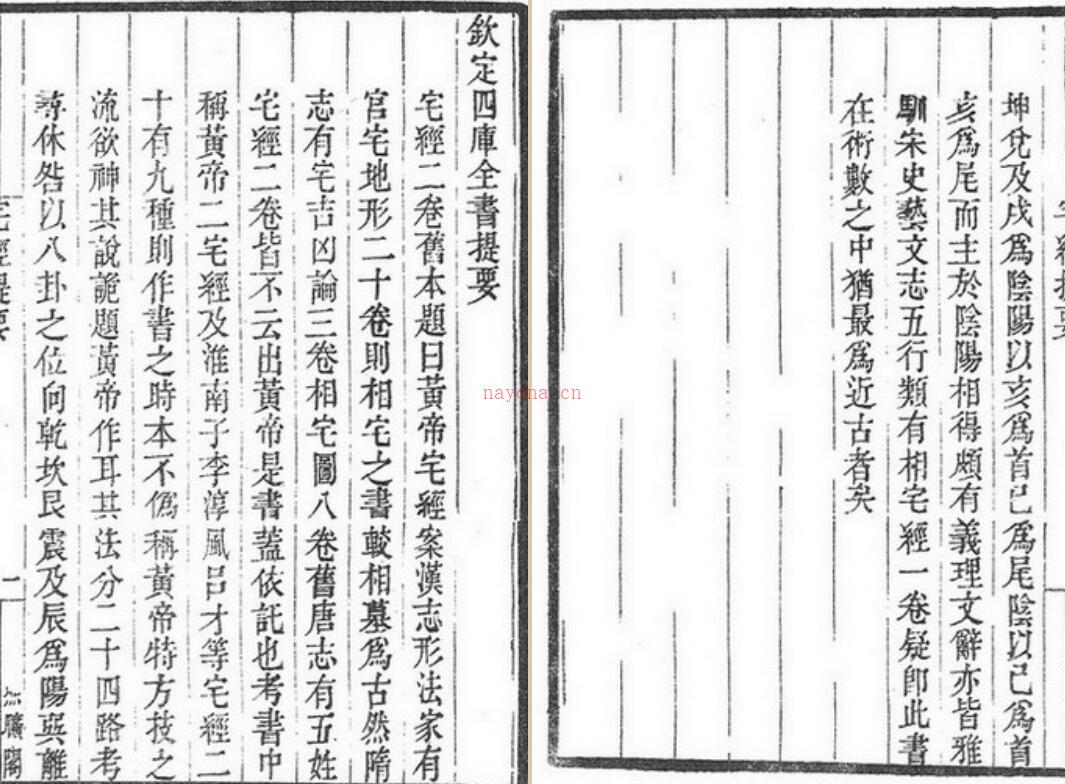 欽定四庫全書提要
宅經二卷舊本題曰黃帝宅經案漢志形法家有
官宅地形二十卷則相宅之書較相墓爲古然隋
志有宅吉凶論三卷相宅圖八卷舊唐志有五姓
宅經二卷皆不云出黃帝是書蓋依託也考書中
稱黃帝二宅經及淮南子李淳風呂才等宅經二
十有九種則作書之時本不僞稱黃帝特方技之
流欲神其說詭題黃帝作耳其法分二十四路考
尋休咎以八卦之位向乾坎艮震及辰爲陽巽離
宅經提要
曠閣
宅經提要
坤兌及戌爲陰陽以亥爲首巳爲尾陰以巳爲首
亥爲尾而主於陰陽相得頗有義理文辭亦皆雅
馴宋史藝文志五行類有相宅經一卷疑卽此書
在術數之中猶最爲近古者矣
nayona.cn